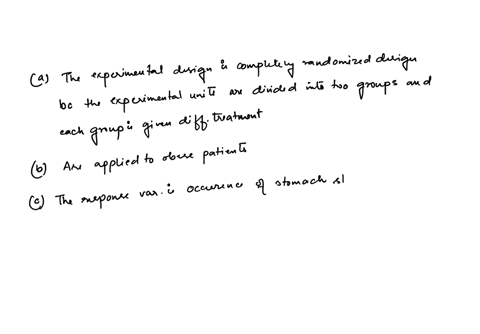 (a) The experimental design is completely randomized design
bc the experimental units are divided into two groups and
each group is given diff. treatment
(b) Are applied to obese patients
(c) The response var. is occurence of stomach sl